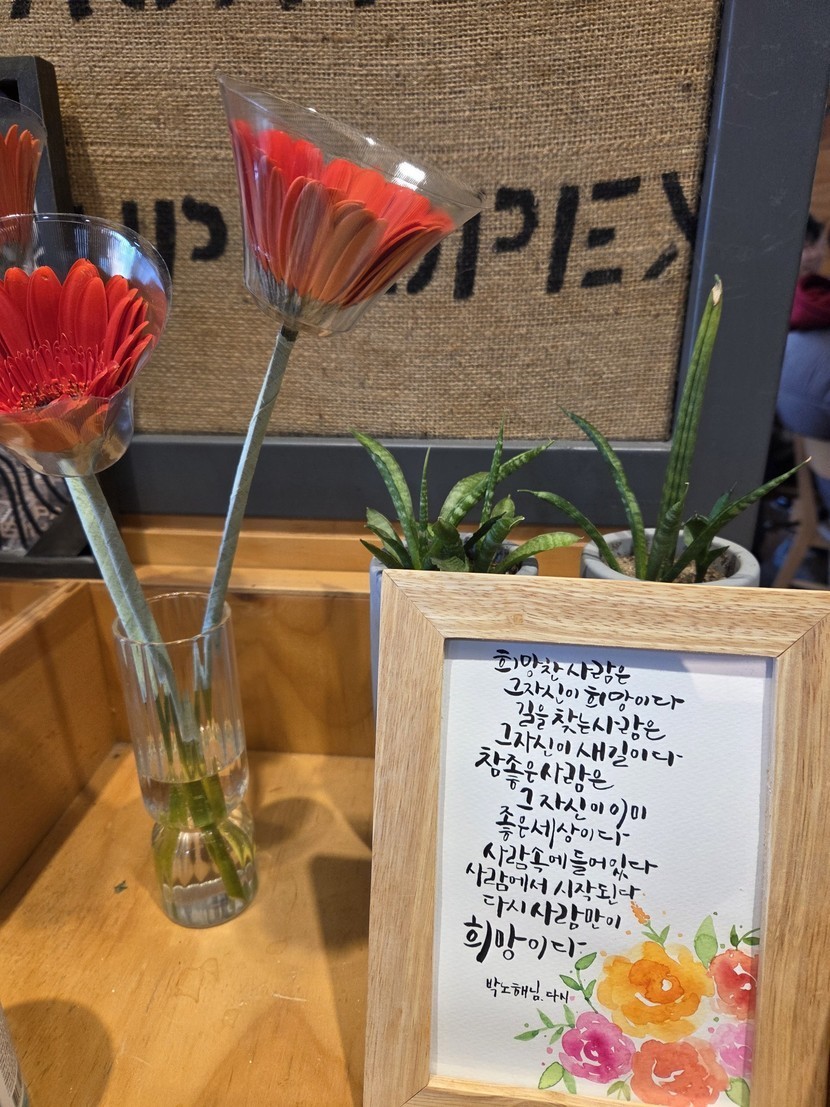 UP
OPEX
희망찬 사람은
그 자신이 희망이다
길을 찾는 사람은
그 자신이 새 길이다
참 좋은 사람은
그 자신이 이미
좋은 세상이다
사람 속에 들어있다
사람에서 시작된다
다시 사람만이
희망이다
박노해님. 다시